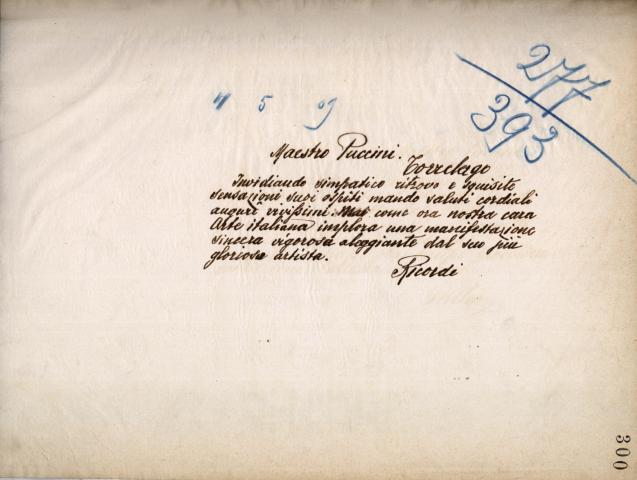 277
393
4 5 09
Maestro Puccini.
Torrelago
Invidiando simpatico ritrovo e squisite
sensazioni suoi ospiti mando saluti cordiali
auguri vivissimi. Mai come ora nostra cara
Arte italiana implora una manifestazione
sincera vigorosa aleggiante dal suo più
glorioso artista.
Ricordi
300